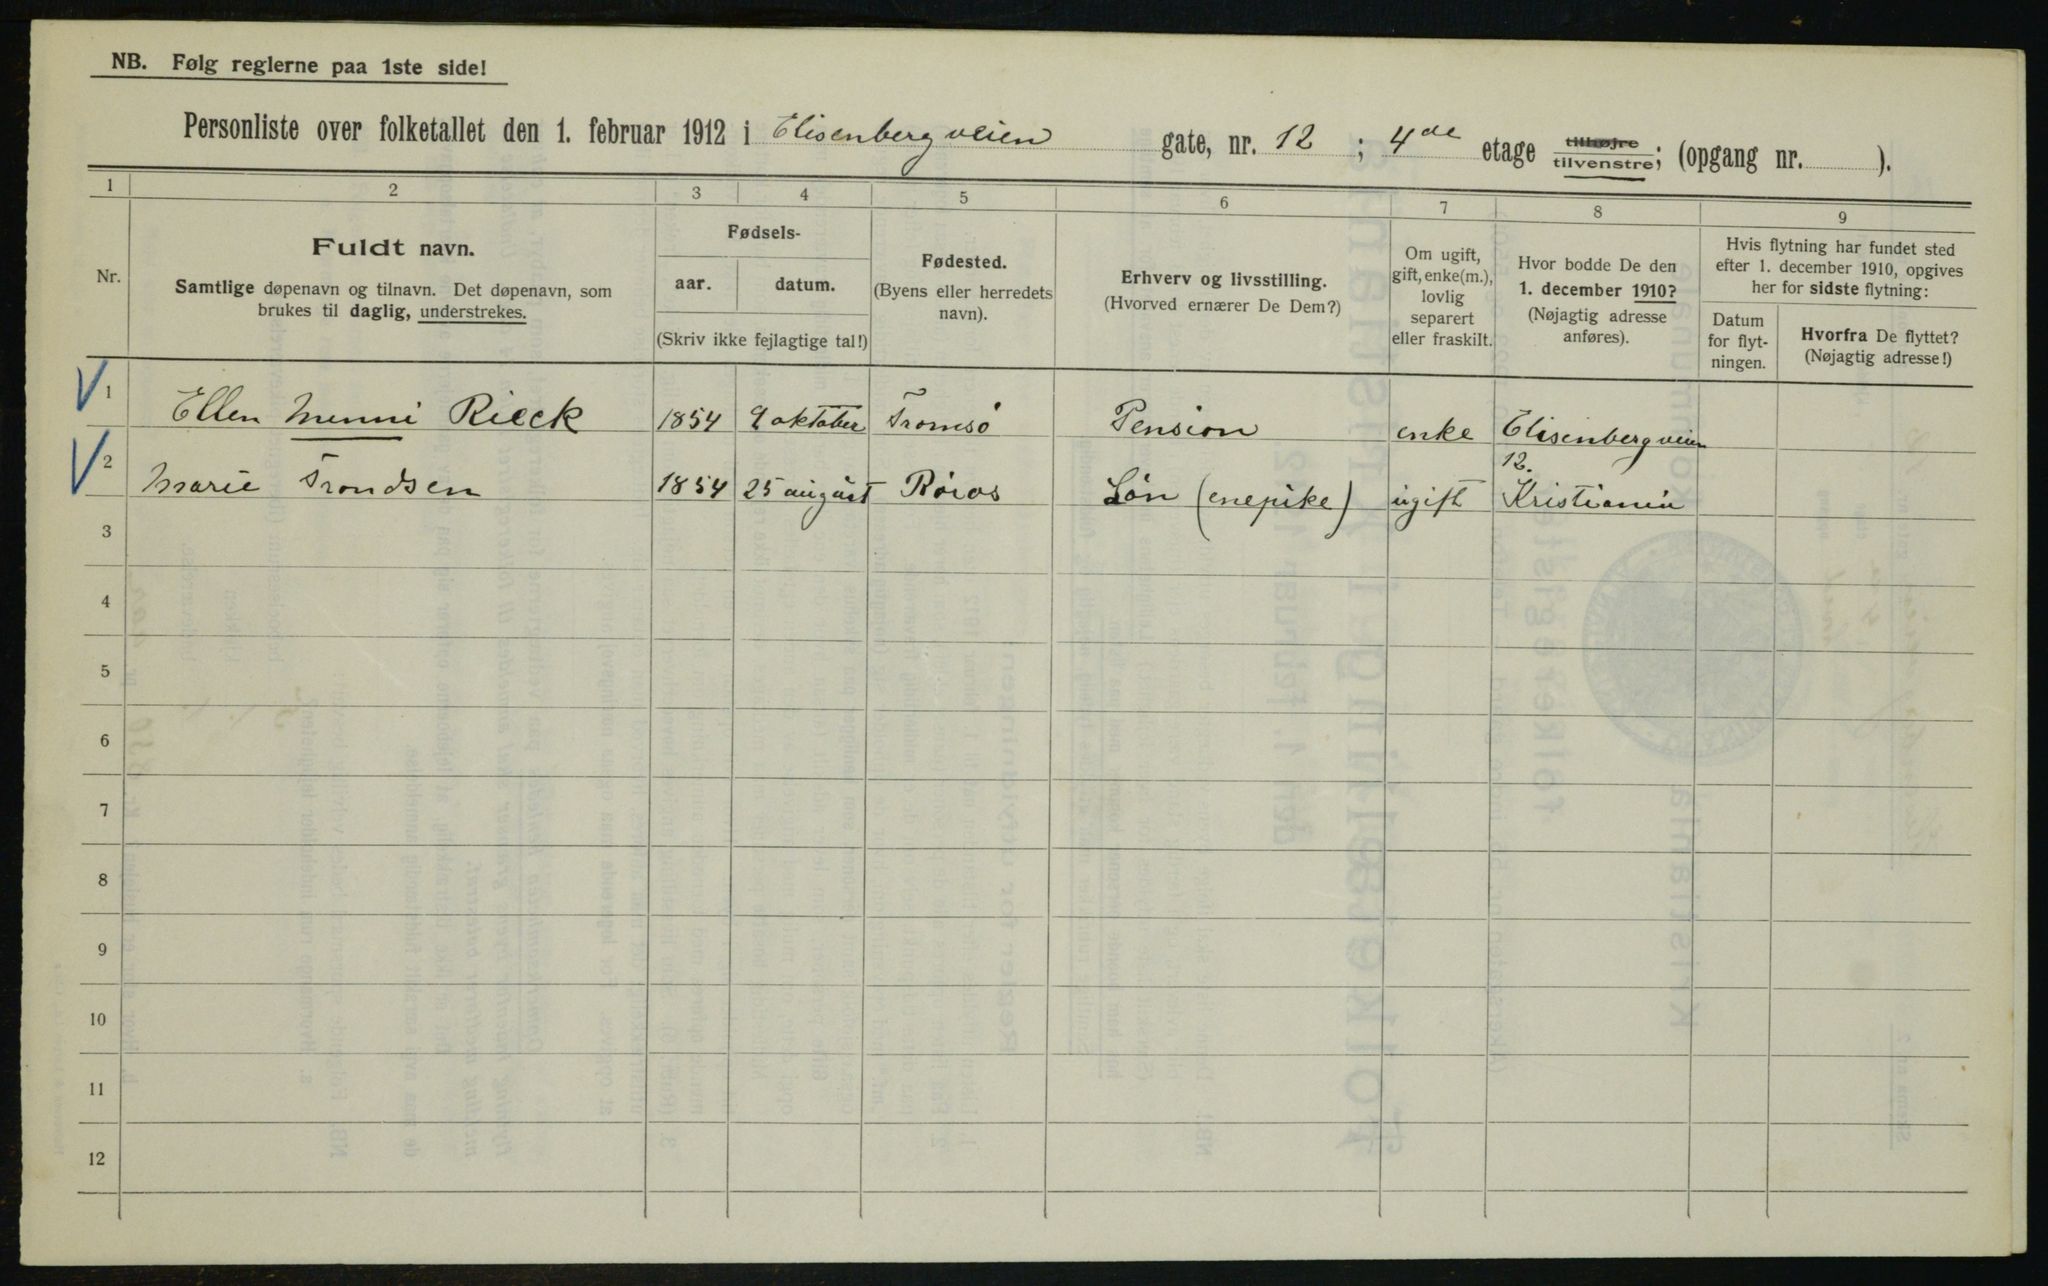 NB. Følg reglerne paa 1ste side!
Personliste over folketallet den 1. februar 1912 i Elisenbergveien gate, nr. 12 ; 4de etage tilhøjre tilvenstre; (opgang nr. ).
1 2 3 4 5 6 7 8 9
Nr.
Fuldt navn.
Samtlige døpenavn og tilnavn. Det døpenavn, som
brukes til daglig, understrekes.
Fødsels-
aar. datum.
(Skriv ikke fejlagtige tal!)
Fødested.
(Byens eller herredets
navn).
Erhverv og livsstilling.
(Hvorved ernærer De Dem?)
Om ugift,
gift, enke(m.),
lovlig
separert
eller fraskilt.
Hvor bodde De den
1. december 1910?
(Nøjagtig adresse
anføres).
Hvis flytning har fundet sted
efter 1. december 1910, opgives
her for sidste flytning:
Datum
for flyt-
ningen.
Hvorfra De flyttet?
(Nøjagtig adresse!)
1 Ellen Menni Rieck 1854 9 oktober Tromsö Pension enke Elisenbergveien
12.
2 Marie Trondsen 1854 25 august Röros Lön (enepike) ugift Kristiania
3
4
5
6
7
8
9
10
11
12